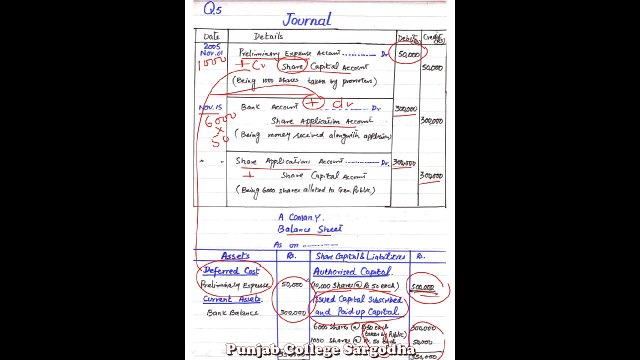 Q.5
Journal
Date Details Debit Credit
2005
Nov.01 Preliminary Expense Account ........... Dr 50,000
1000 + Cr Share Capital Account 50,000
(Being 1000 shares taken by promoters)
Nov.15 Bank Account + dr Dr 300,000
6000 Share Application Account 300,000
x (Being money received alongwith application)
50
" " Share Applications Account ........... Dr. 300,000
+ Share Capital Account 300,000
(Being 6000 shares allotted to Gen. Public)
A Comany.
Balance Sheet
As on ............
Assets Rs. Share Capital & Liabilities Rs.
Deferred Cost Authorized Capital
Preliminary Expense 50,000 (10,000 shares @ Rs 50 each) 500,000
Current Assets. Issued Capital Subscribed
Bank Balance 300,000 and Paid up Capital
6000 shares @ Rs 50 each 300,000
(taken by Public)
1000 shares @ 50,000
350,000
Punjab College Sargodha